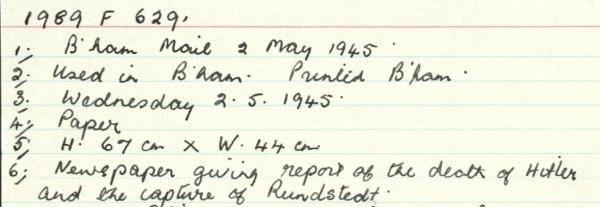 1989 F 629.
1; B'ham Mail 2 May 1945.
2; Used in B'ham. Printed B'ham.
3; Wednesday 2.5.1945.
4; Paper
5; H. 67 cm x W. 44 cm
6; Newspaper giving report of the death of Hitler
and the capture of Rundstedt.